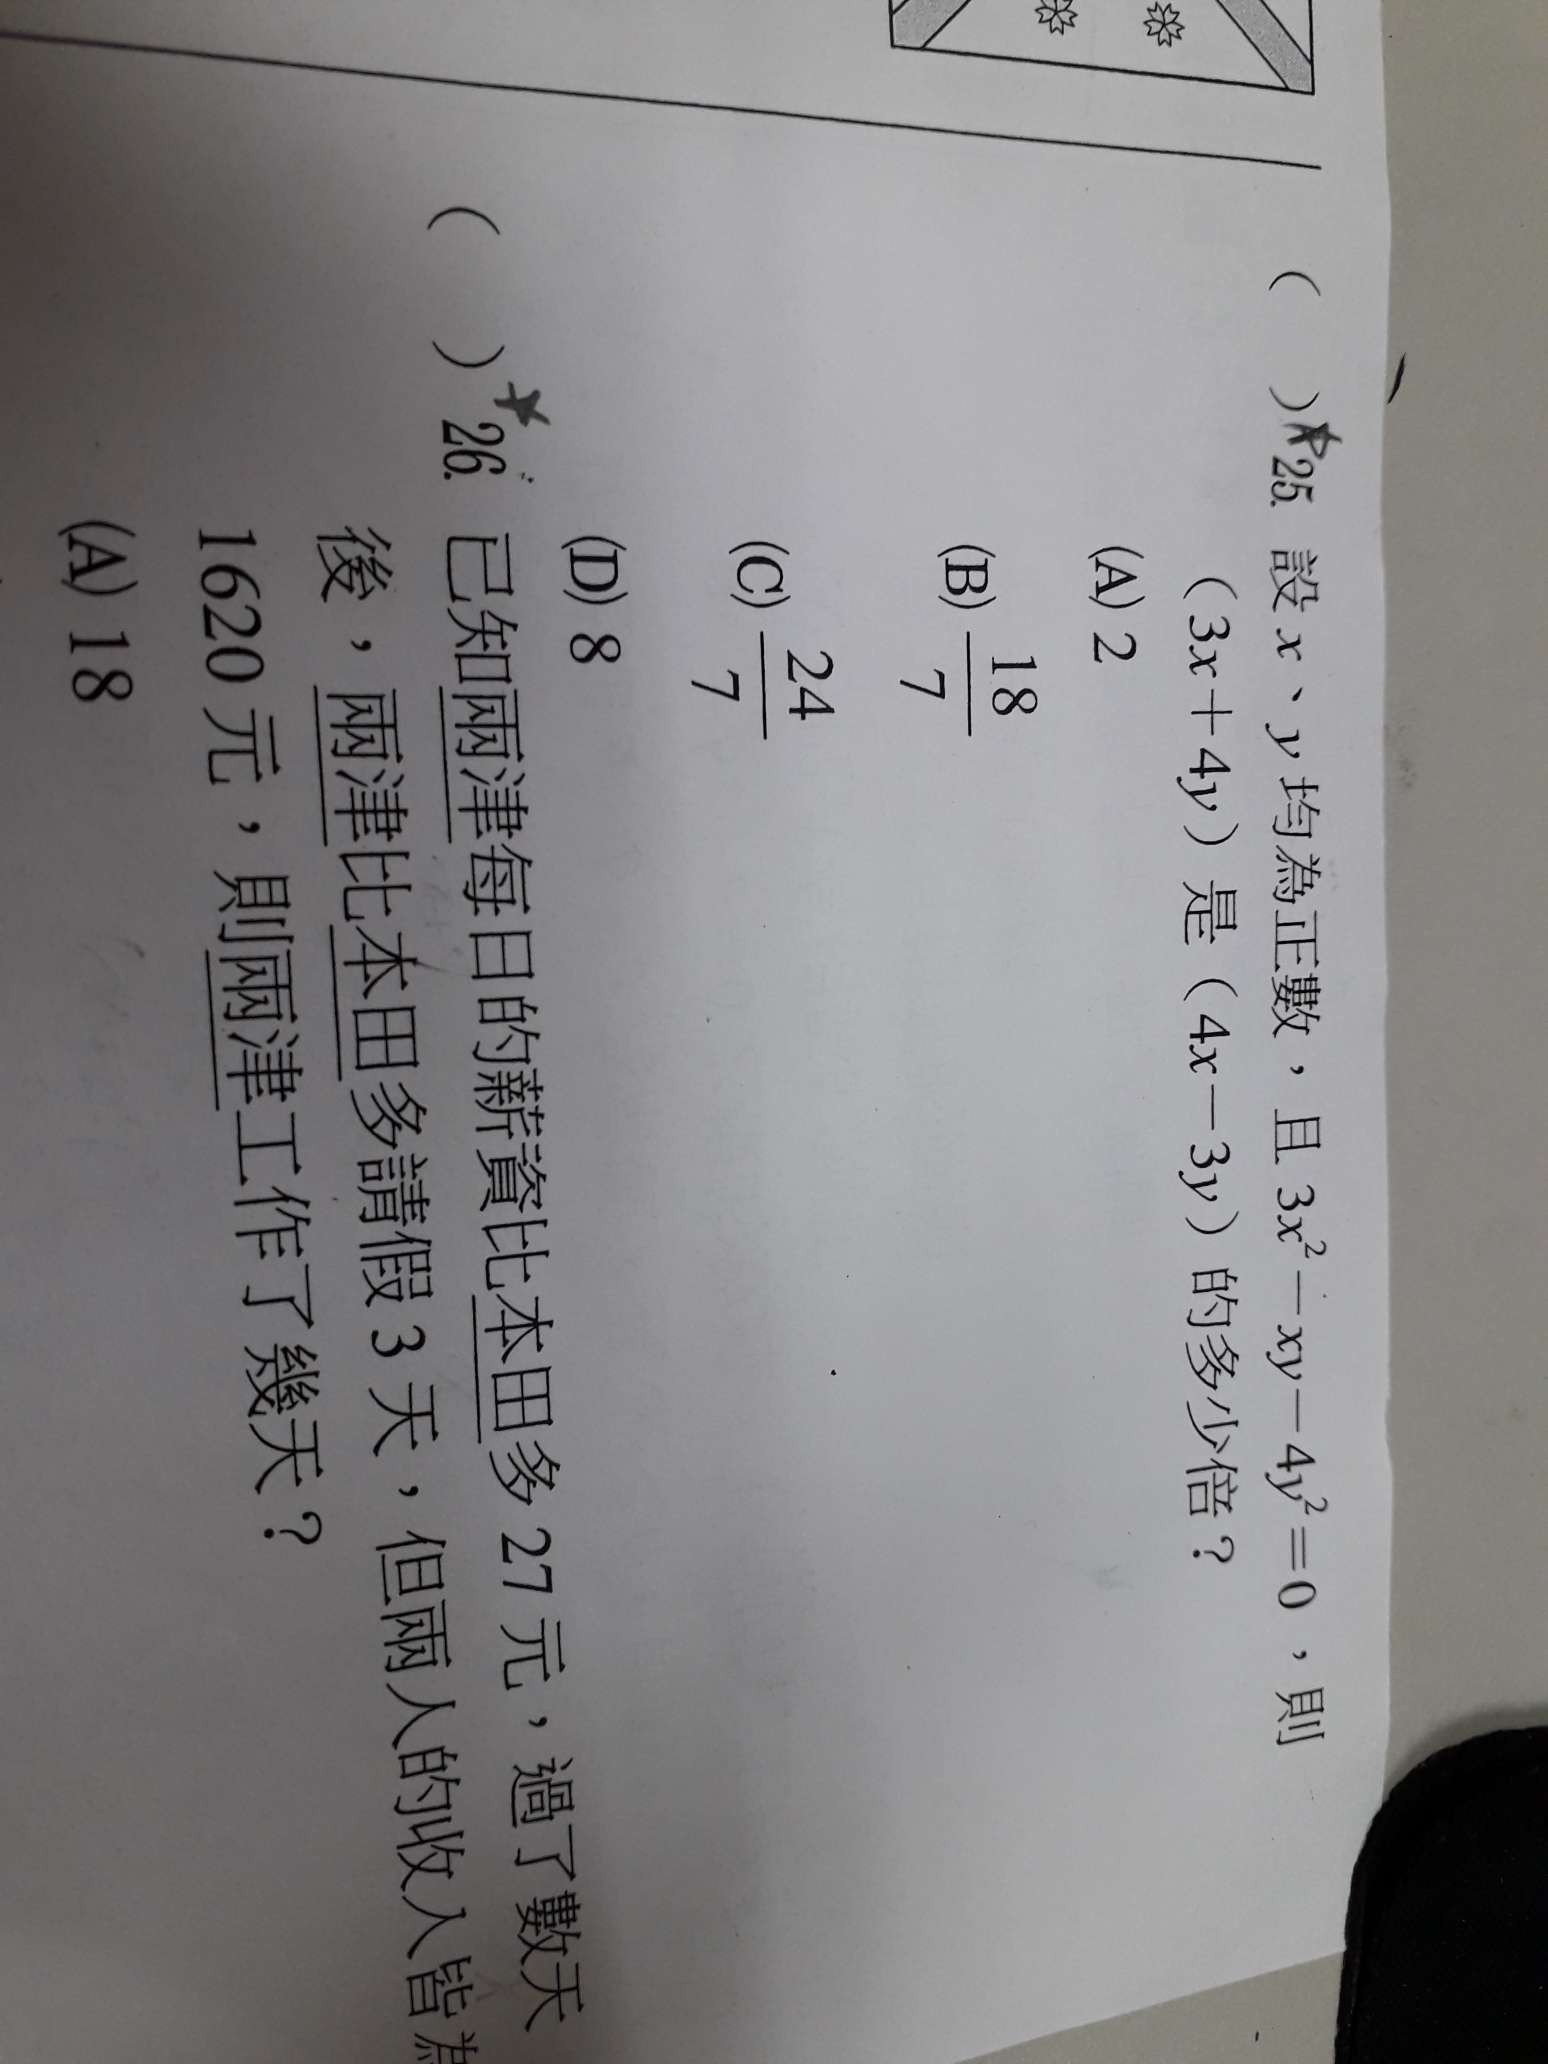 ( )25. 設 x、y 均為正數，且 3x²－xy－4y²＝0，則
（3x＋4y）是（4x－3y）的多少倍？
(A) 2
(B) 18/7
(C) 24/7
(D) 8
( )26. 已知兩津每日的薪資比本田多 27 元，過了數天
後，兩津比本田多請假 3 天，但兩人的收入皆為
1620 元，則兩津工作了幾天？
(A) 18